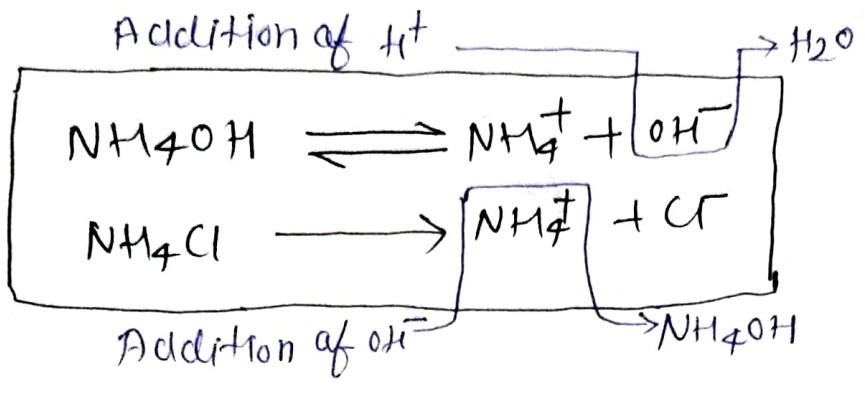 Addition of H⁺ → H₂O
NH₄OH ⇌ NH₄⁺ + OH⁻
NH₄Cl → NH₄⁺ + Cl⁻
Addition of OH⁻ → NH₄OH